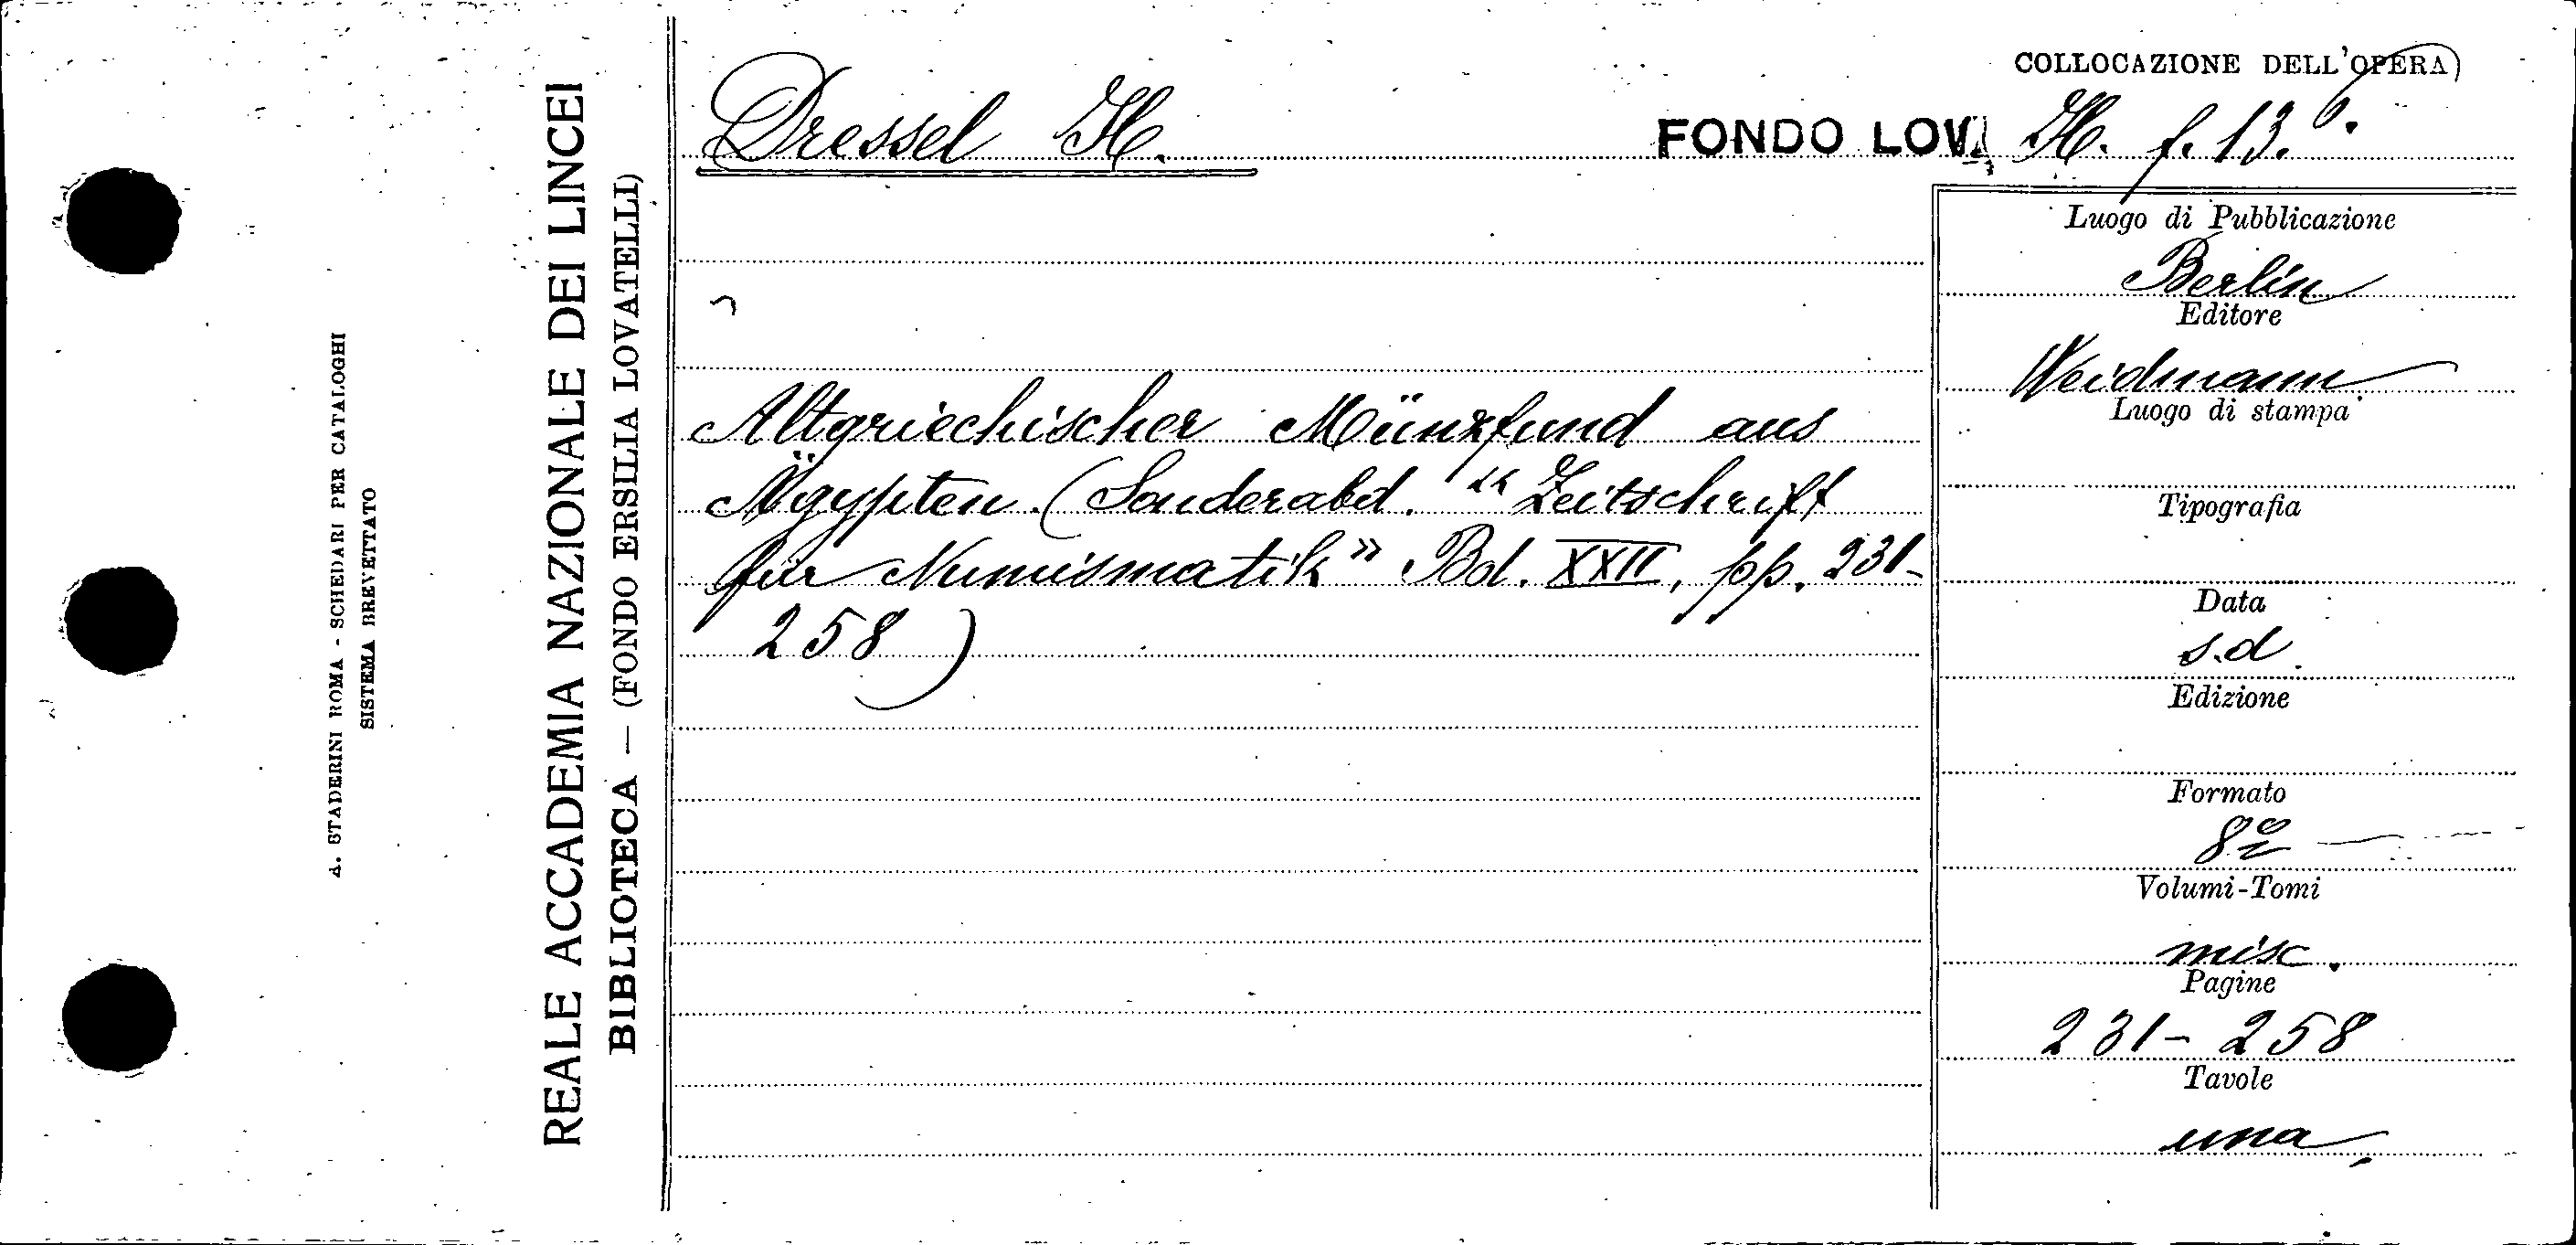 COLLOCAZIONE DELL'OPERA
Dressel H.
FONDO LOV. H. f. 13. 6.
Altgriechischer Münzfund aus
Ägypten. (Sonderabd. "Zeitschrift
für Numismatik" Bd. XXII, pp. 231-
258)
Luogo di Pubblicazione
Berlin
Editore
Weidmann
Luogo di stampa
Tipografia
Data
s.d.
Edizione
Formato
8º
Volumi-Tomi
misc.
Pagine
231-258
Tavole
una
REALE ACCADEMIA NAZIONALE DEI LINCEI
BIBLIOTECA — (FONDO ERSILIA LOVATELLI)
A. STADERINI ROMA - SCHEDARI PER CATALOGHI
SISTEMA BREVETTATO